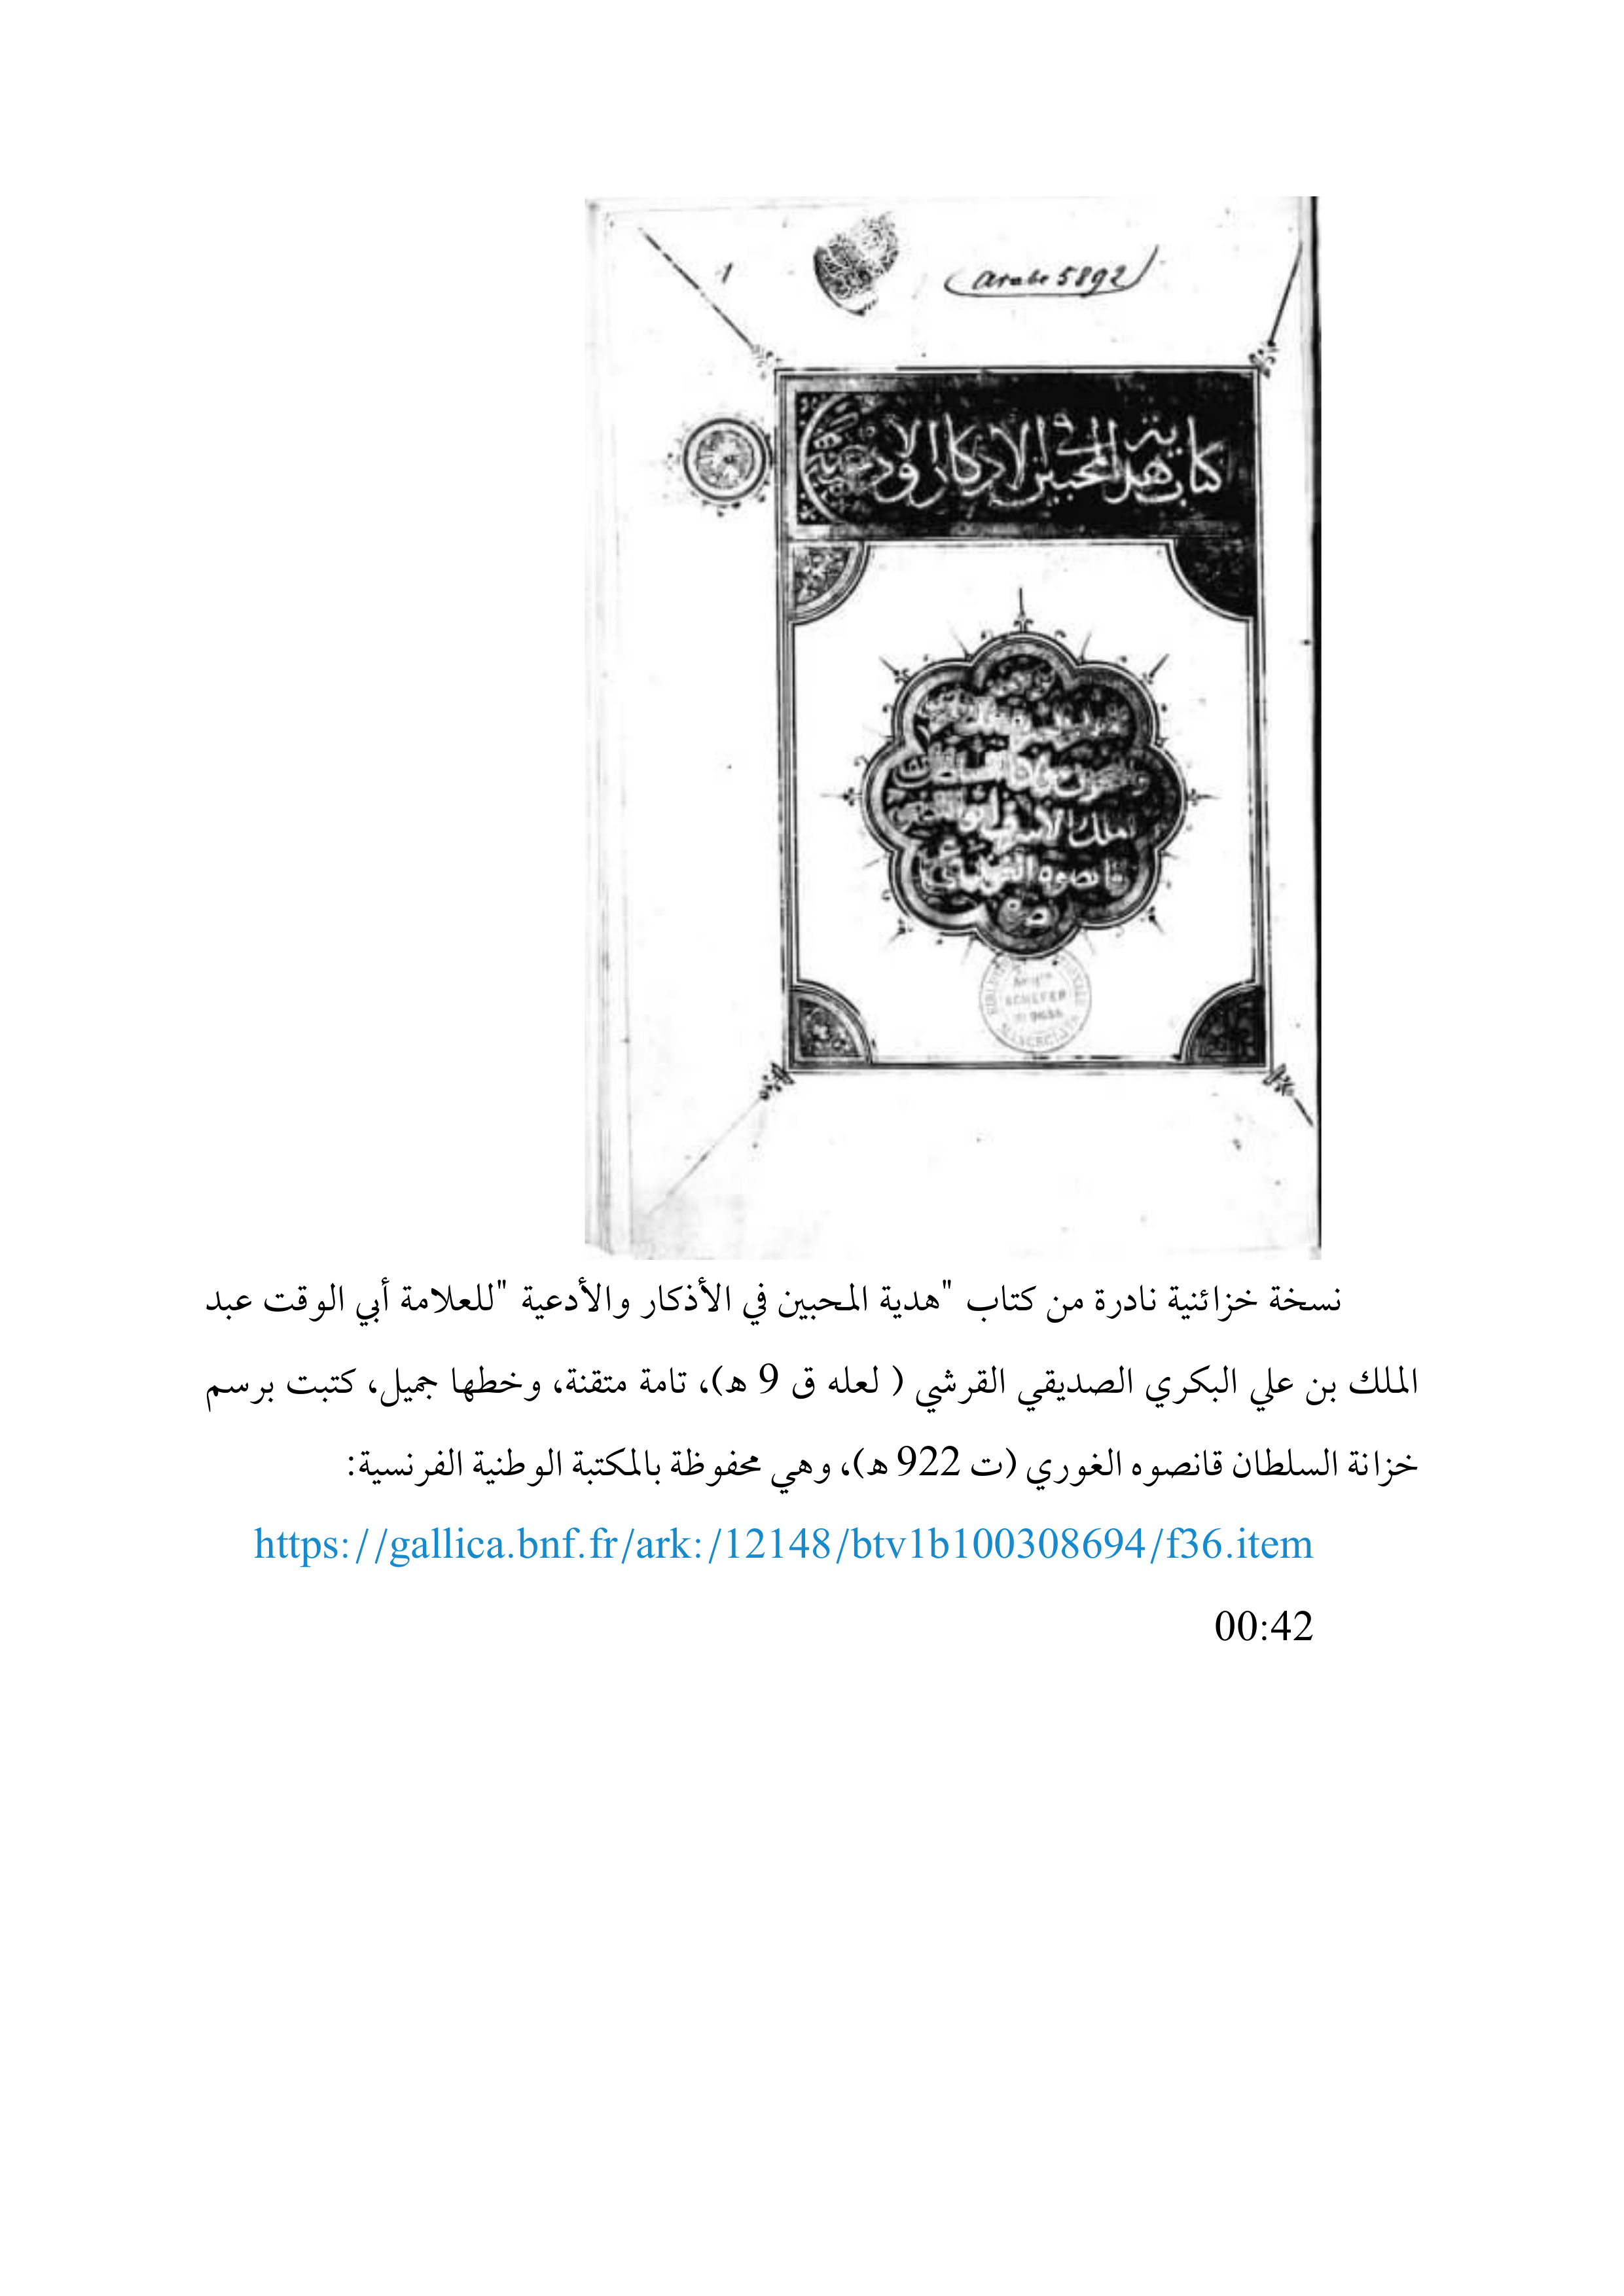 1
Arabe 5892
كتاب هدية المحبين في الاذكار والادعية
الملك الاشرف
قانصوه الغوري
SCHEFER
نسخة خزائنية نادرة من كتاب "هدية المحبين في الأذكار والأدعية "للعلامة أبي الوقت عبد
الملك بن علي البكري الصديقي القرشي ( لعله ق 9 هـ)، تامة متقنة، وخطها جميل، كتبت برسم
خزانة السلطان قانصوه الغوري (ت 922 هـ)، وهي محفوظة بالمكتبة الوطنية الفرنسية:
https://gallica.bnf.fr/ark:/12148/btv1b100308694/f36.item
00:42